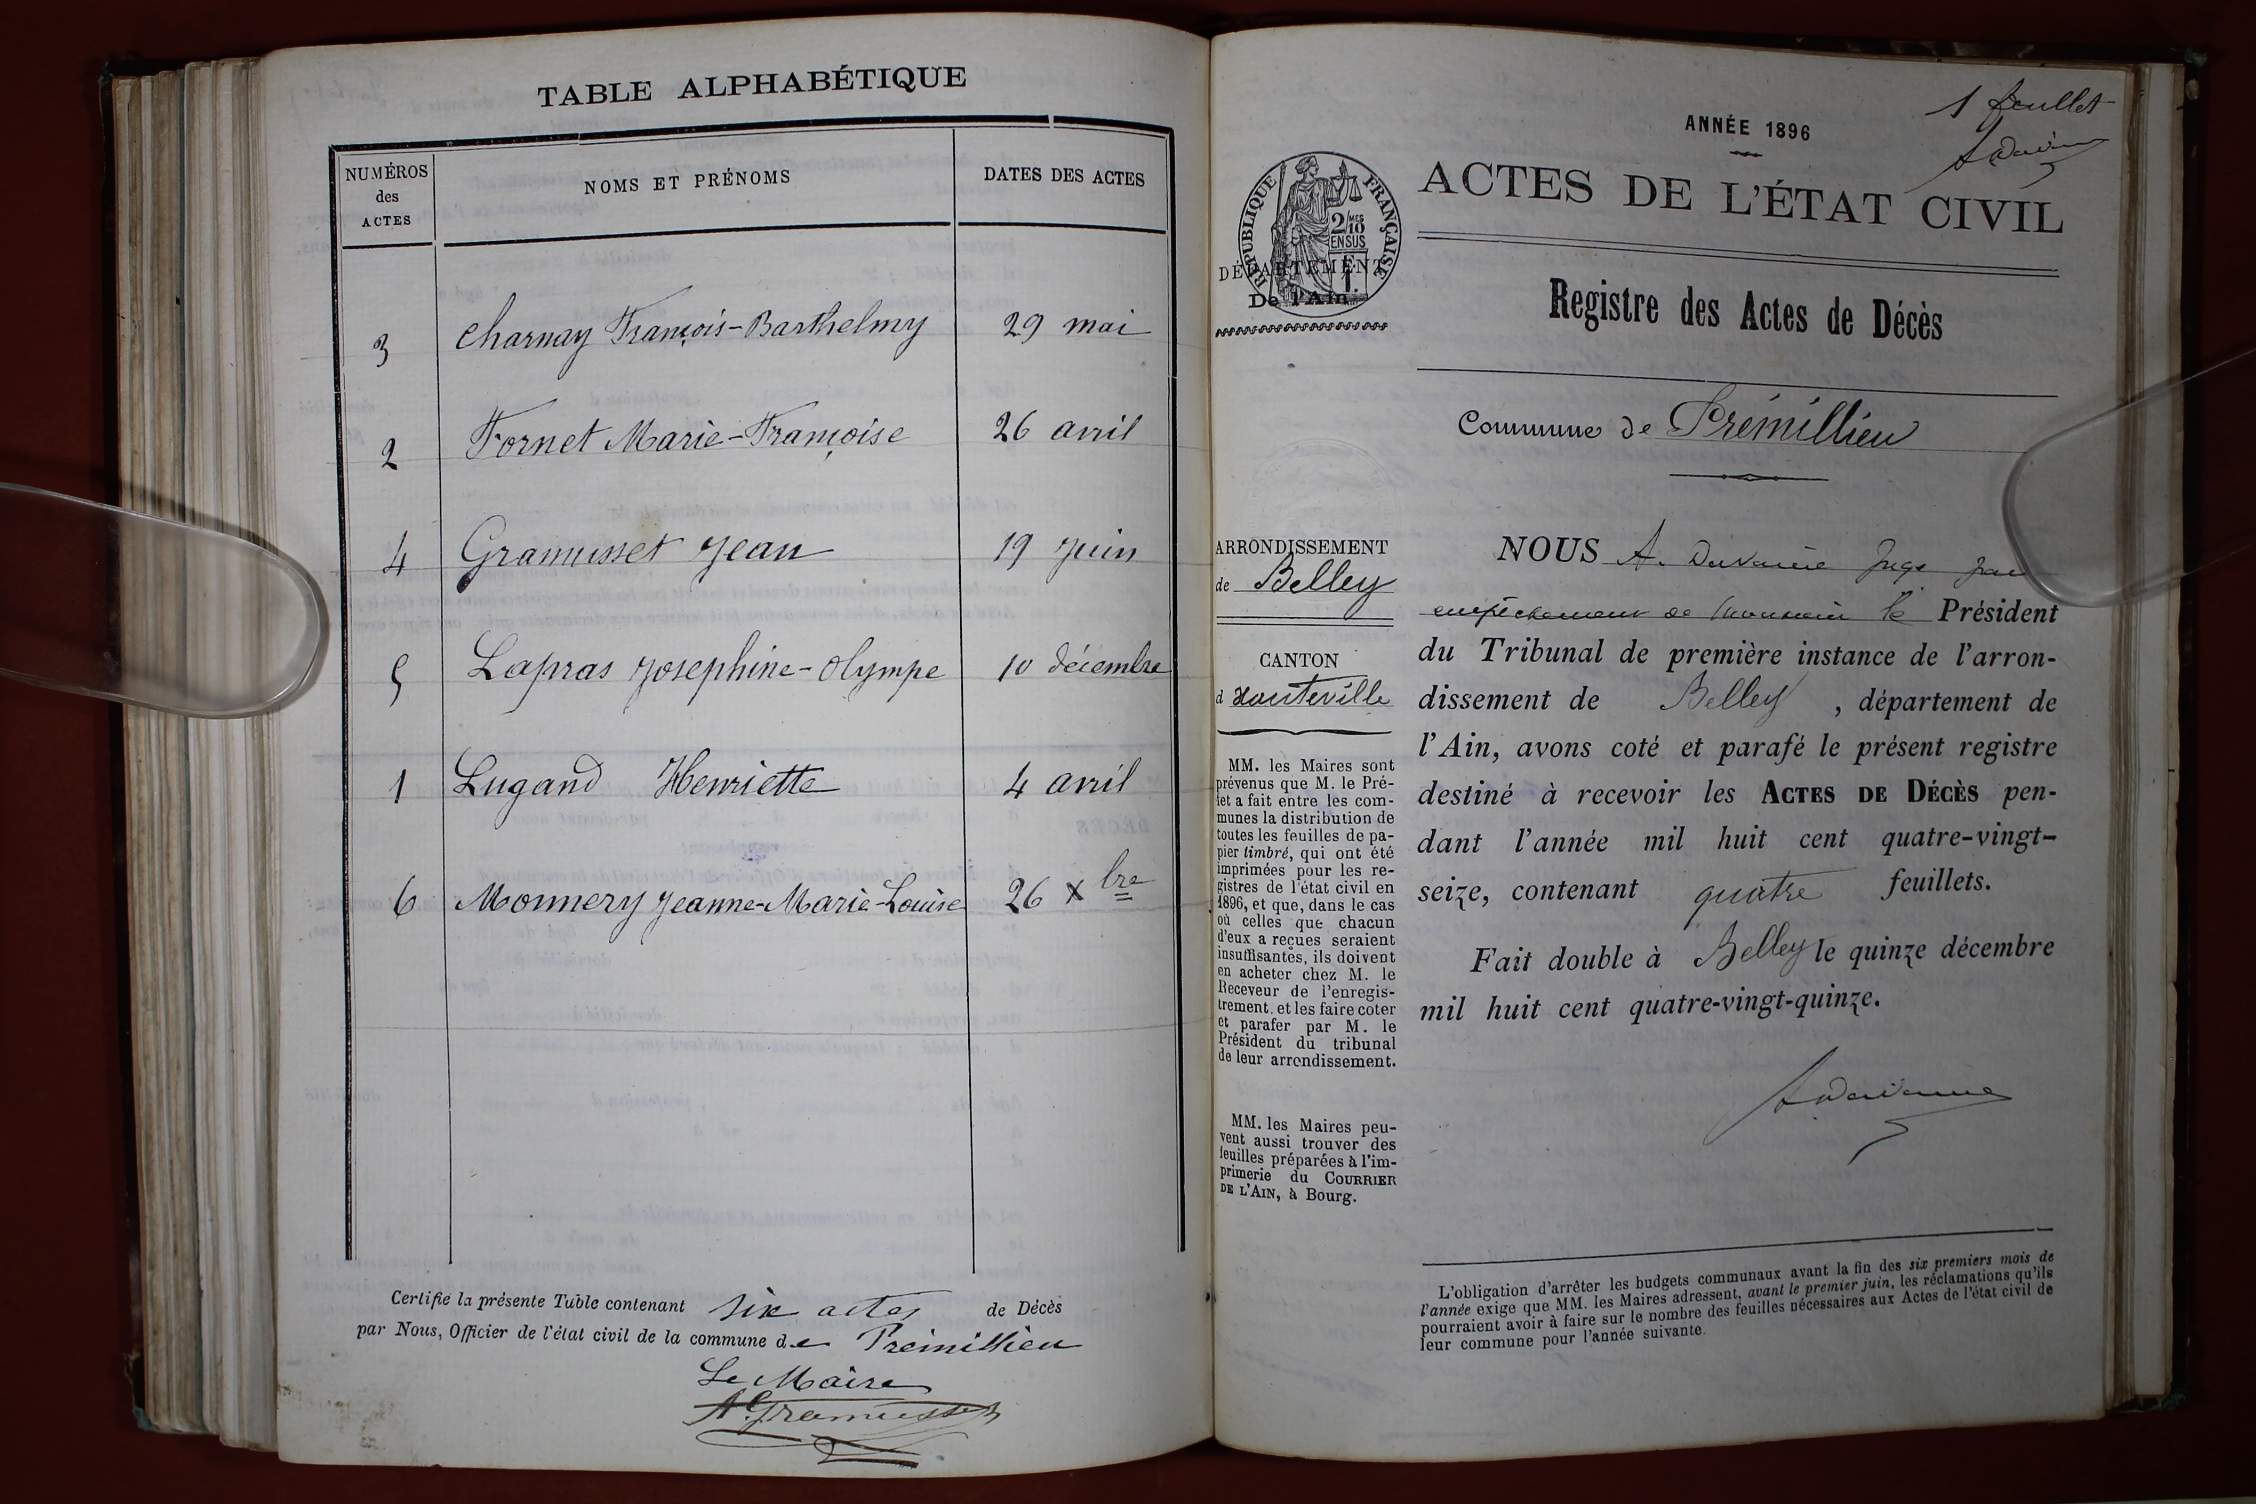 TABLE ALPHABÉTIQUE
NUMÉROS
des
ACTES
NOMS ET PRÉNOMS
DATES DES ACTES
3 Charnay François-Barthelmy 29 mai
2 Fornet Marie-Françoise 26 avril
4 Gramusset Jean 19 Juin
5 Lapras Josephine-Olympe 10 décembre
1 Lugand Henriette 4 avril
6 Monnery Jeanne-Marie-Louise 26 Xbre
Certifie la présente Table contenant six actes de Décès
par Nous, Officier de l'état civil de la commune de Prémillieu
Le Maire
Gramusset
1 feuillet
ANNÉE 1896
ACTES DE L'ÉTAT CIVIL
RÉPUBLIQUE FRANÇAISE
2/10
MES
EN SUS
1F.
DÉPARTEMENT
De l'Ain
Registre des Actes de Décès
Commune de Prémillieu
ARRONDISSEMENT
de Belley
CANTON
d'Hauteville
MM. les Maires sont
prévenus que M. le Pré-
fet a fait entre les com-
munes la distribution de
toutes les feuilles de pa-
pier timbré, qui ont été
imprimées pour les re-
gistres de l'état civil en
1896, et que, dans le cas
où celles que chacun
d'eux a reçues seraient
insuffisantes, ils doivent
en acheter chez M. le
Receveur de l'enregis-
trement, et les faire coter
et parafer par M. le
Président du tribunal
de leur arrondissement.
MM. les Maires peu-
vent aussi trouver des
feuilles préparées à l'im-
primerie du COURRIER
DE L'AIN, à Bourg.
NOUS A. Davanne Juge par
empêchement de Monsieur le Président
du Tribunal de première instance de l'arron-
dissement de Belley, département de
l'Ain, avons coté et parafé le présent registre
destiné à recevoir les ACTES DE DÉCÈS pen-
dant l'année mil huit cent quatre-vingt-
seize, contenant quatre feuillets.
Fait double à Belley le quinze décembre
mil huit cent quatre-vingt-quinze.
A Davanne
L'obligation d'arrêter les budgets communaux avant la fin des six premiers mois de
l'année exige que MM. les Maires adressent, avant le premier juin, les réclamations qu'ils
pourraient avoir à faire sur le nombre des feuilles nécessaires aux Actes de l'état civil de
leur commune pour l'année suivante.